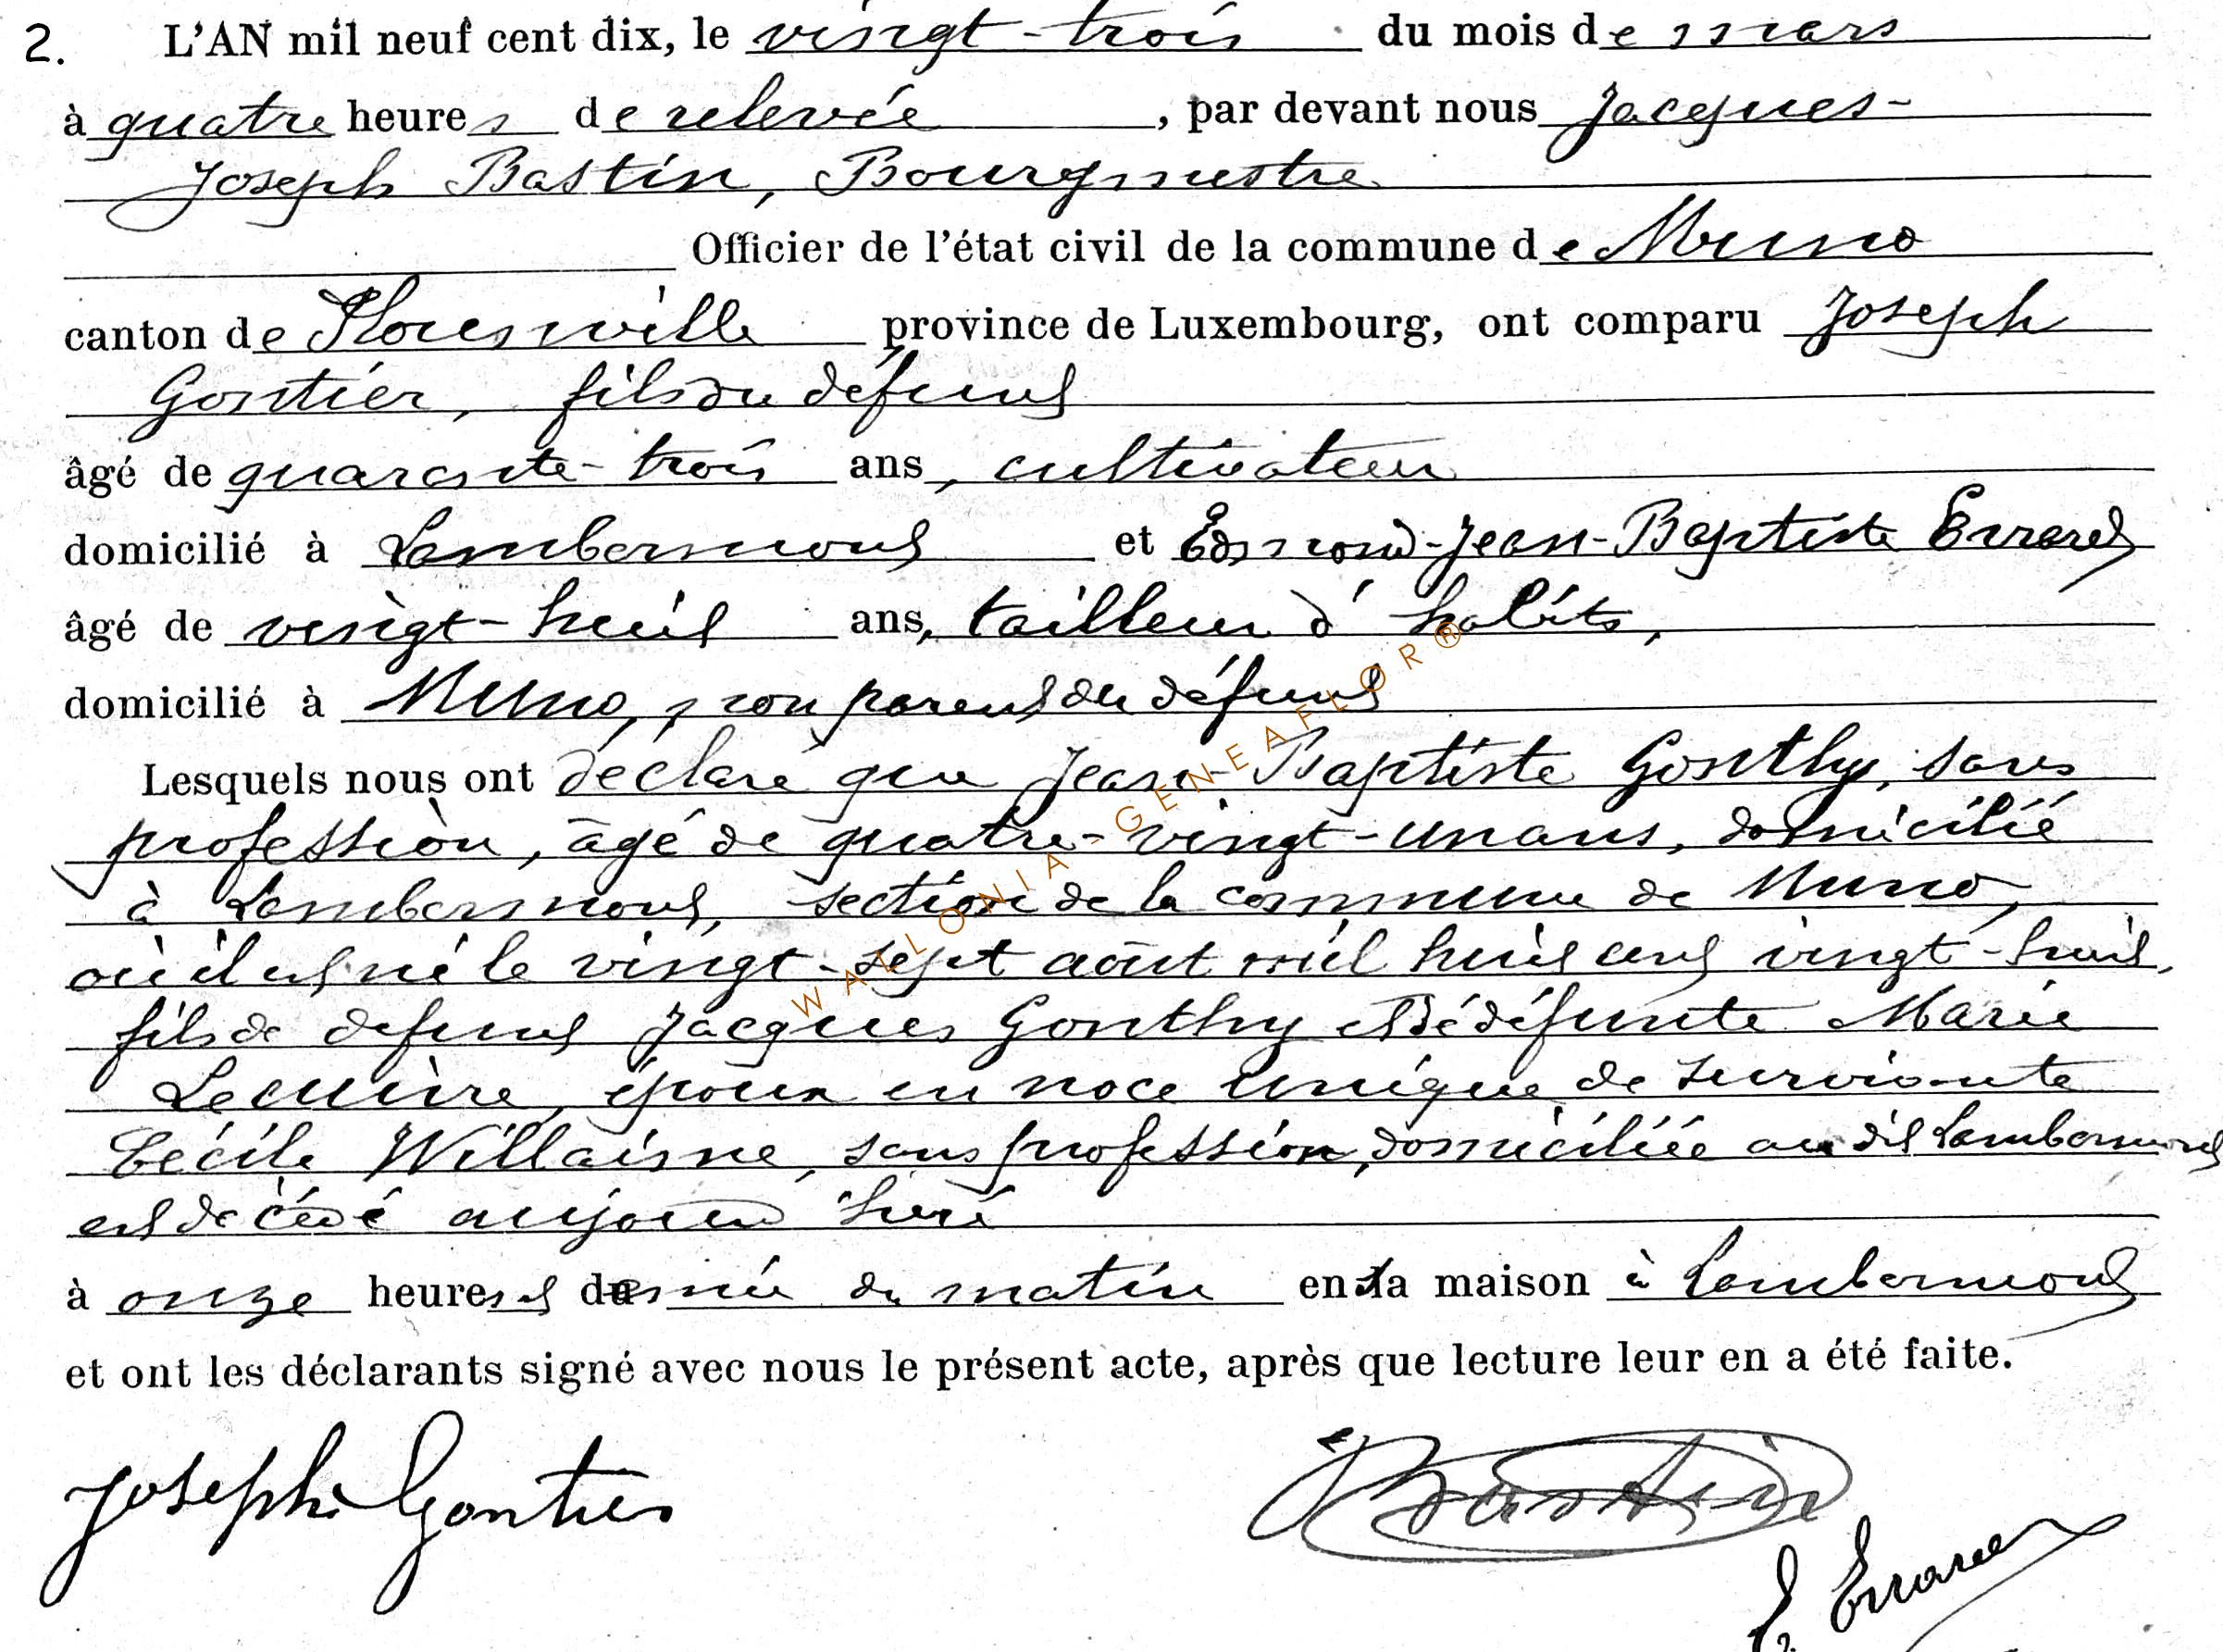 2. L'AN mil neuf cent dix, le vingt-trois du mois de mars
à quatre heures de relevée, par devant nous Jacques-
Joseph Bastin, Bourgmestre
Officier de l'état civil de la commune de Muno
canton de Florenville province de Luxembourg, ont comparu Joseph
Gontier, fils du défunt
âgé de quarante-trois ans, cultivateur
domicilié à Lambermont et Edmond-Jean-Baptiste Errard
âgé de vingt-huit ans, tailleur d'habits,
domicilié à Muno, non parent du défunt
Lesquels nous ont déclaré que Jean-Baptiste Gonthy, sans
profession, âgé de quatre-vingt-un ans, domicilié
à Lambermont, section de la commune de Muno,
où il est né le vingt-sept août mil huit cent vingt-huit,
fils de défunt Jacques Gonthy et de défunte Marie
Lecuivre, époux en noce unique de survivante
Cécile Willaisne, sans profession, domiciliée au dit Lambermont
est décédé aujourd'hui
à onze heures et demie du matin en sa maison à Lambermont
et ont les déclarants signé avec nous le présent acte, après que lecture leur en a été faite.
Joseph Gontier
Bastin
E. Errard
WALLONIA-GENEAFLOR®